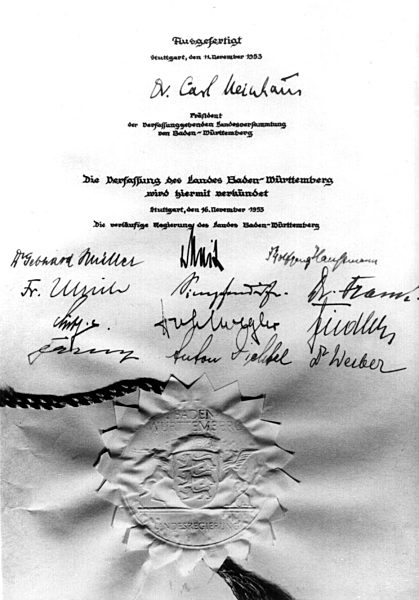 Ausgefertigt
Stuttgart, den 11. November 1953
Dr. Carl Neinhaus
Präsident
der Verfassunggebenden Landesversammlung
von Baden-Württemberg
Die Verfassung des Landes Baden-Württemberg
wird hiermit verkündet
Stuttgart, den 16. November 1953
Die vorläufige Regierung des Landes Baden-Württemberg
Dr Gebhard Müller Wolfgang Haußmann
Fr. Ulrich Dr. Frank
Fiedler
Anton Dichtel Dr Werber
BADEN
WÜRTTEMBERG
LANDESREGIERUNG